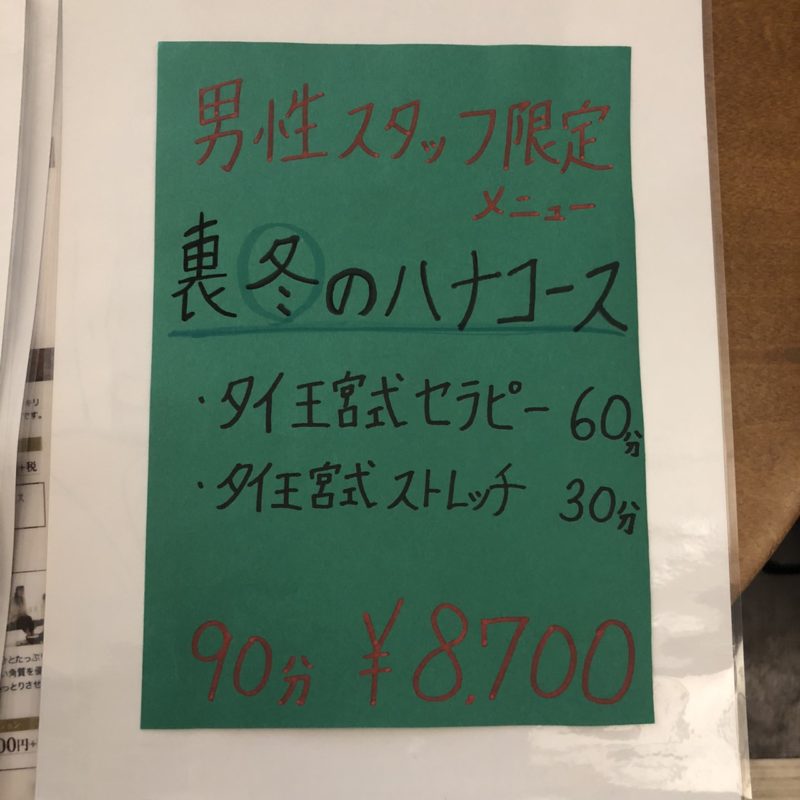 男性スタッフ限定
メニュー
裏冬のハナコース
・タイ王宮式セラピー 60分
・タイ王宮式ストレッチ 30分
90分 ¥8.700
キリ
です。
+税
ス
とたっぷり
い角質を優
っとりさせ
00円+